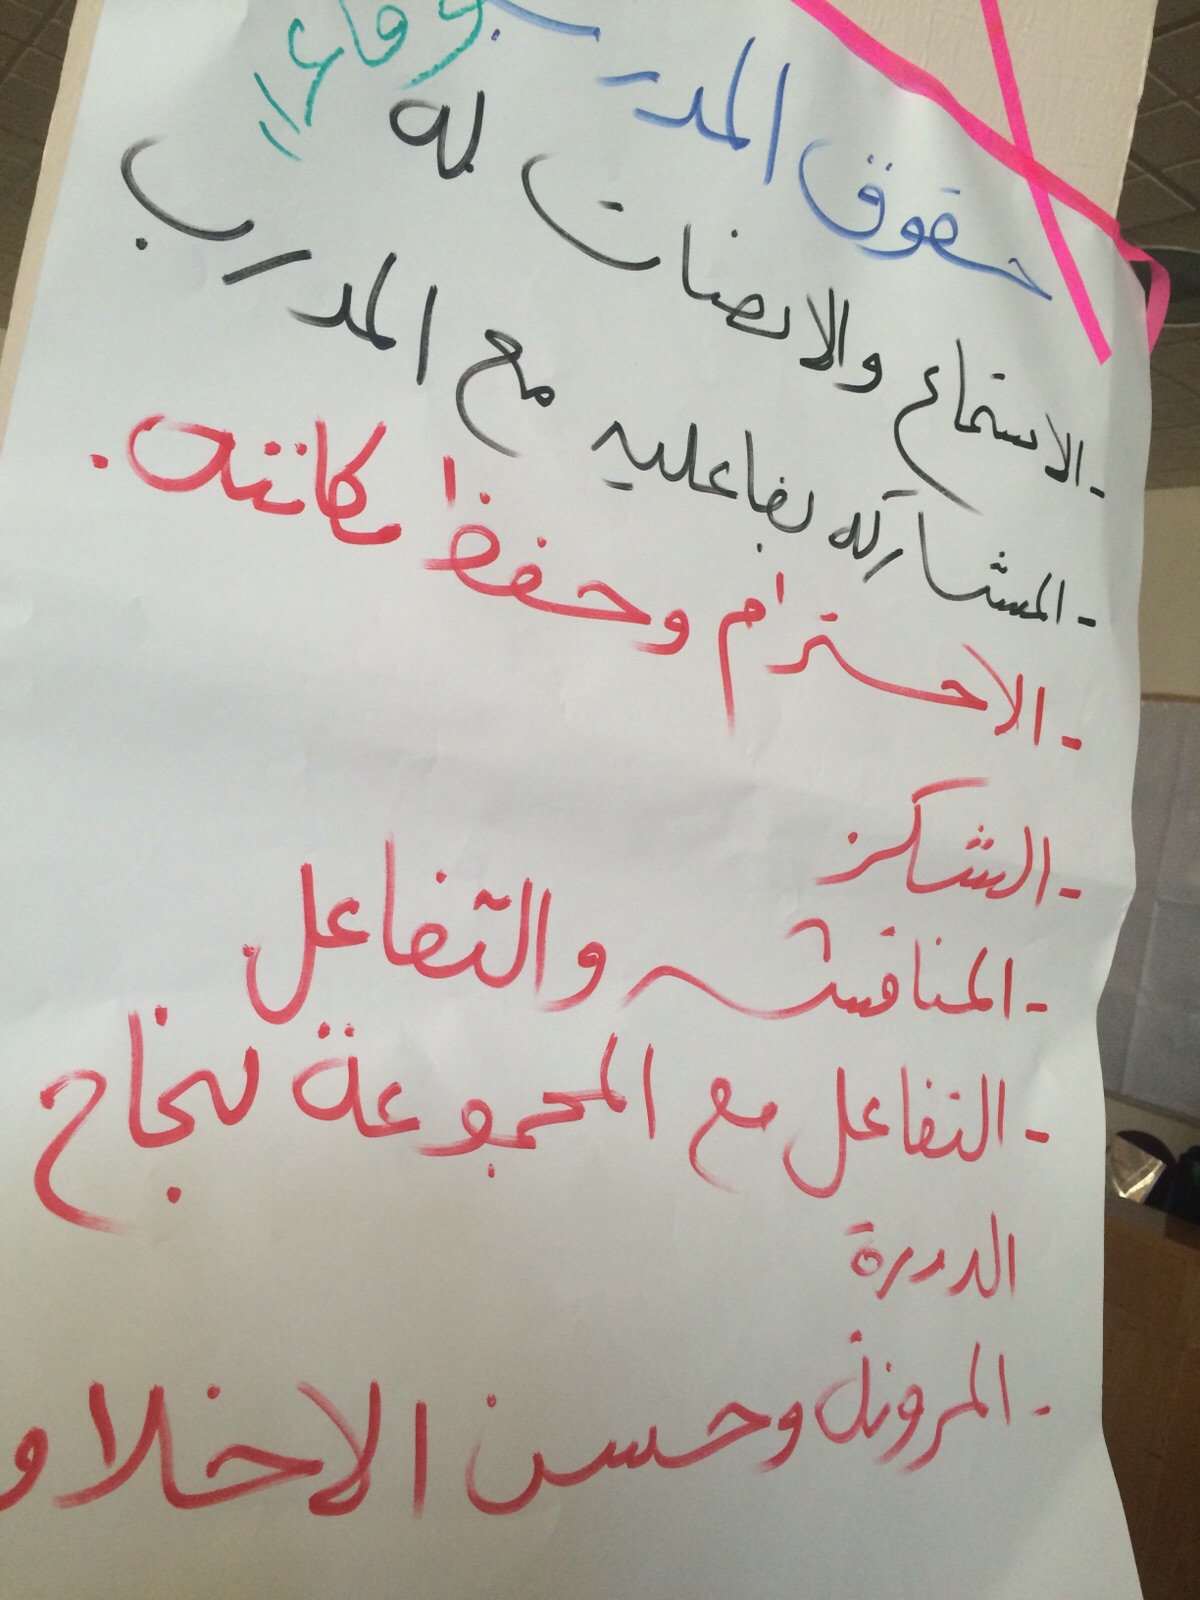 حقوق المدرب
- الاستماع والانصات له
- المشاركه بفاعليه مع المدرب
- الاحترام وحفظ مكانته .
- الشكر
- المناقشه والتفاعل
- التفاعل مع المجموعة لنجاح
الدورة
- المرونة وحسن الاخلاق